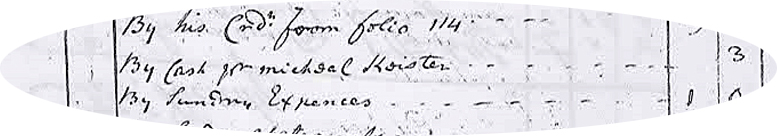 By his Crdr. from folio 114
By Cash pr micheal Keister 3
By Sundry Expences 1